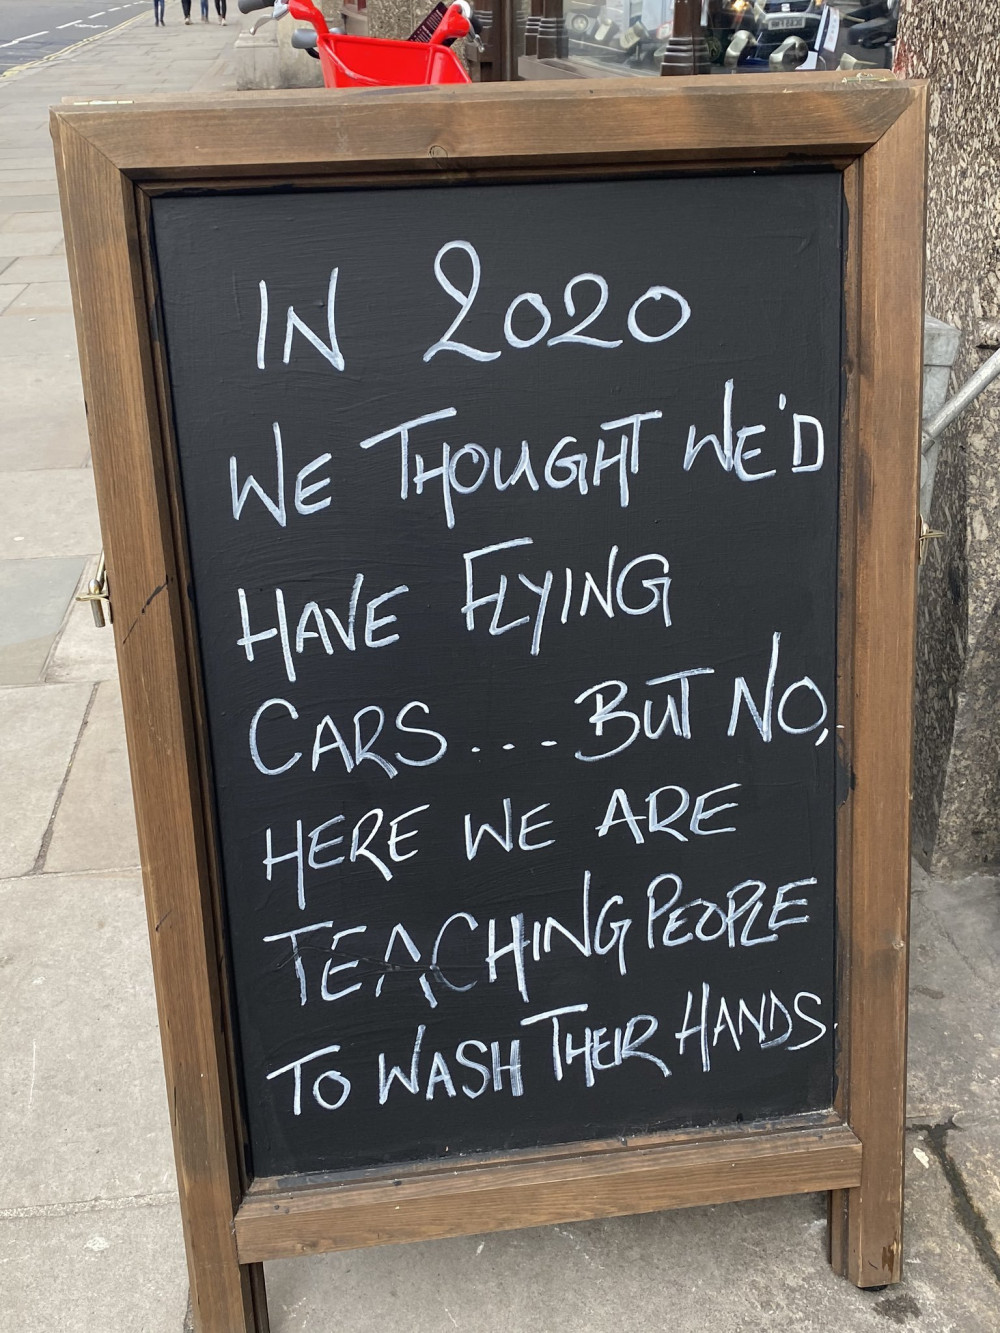 IN 2020
WE THOUGHT WE'D
HAVE FLYING
CARS.... BUT NO,
HERE WE ARE
TEACHING PEOPLE
TO WASH THEIR HANDS.